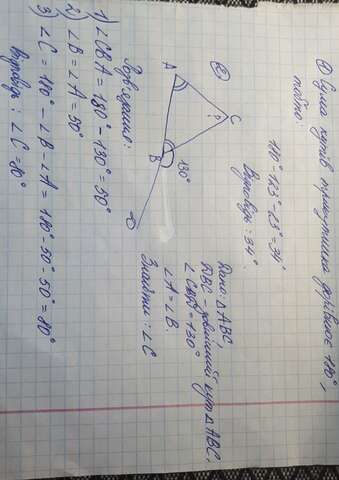 ① Сума кутів трикутника дорівнює 180°,
тобто:
180° - 123° - 23° = 34°
Відповідь: 34°.
②
A
C
?
B
130°
D
Дано: ΔABC,
DBC - зовнішній кут ΔABC,
∠CBD = 130°
∠A = ∠B.
Знайти: ∠C
Розв'язання:
1) ∠CBA = 180° - 130° = 50°
2) ∠B = ∠A = 50°
3) ∠C = 180° - ∠B - ∠A = 180° - 50° - 50° = 80°
Відповідь: ∠C = 80°